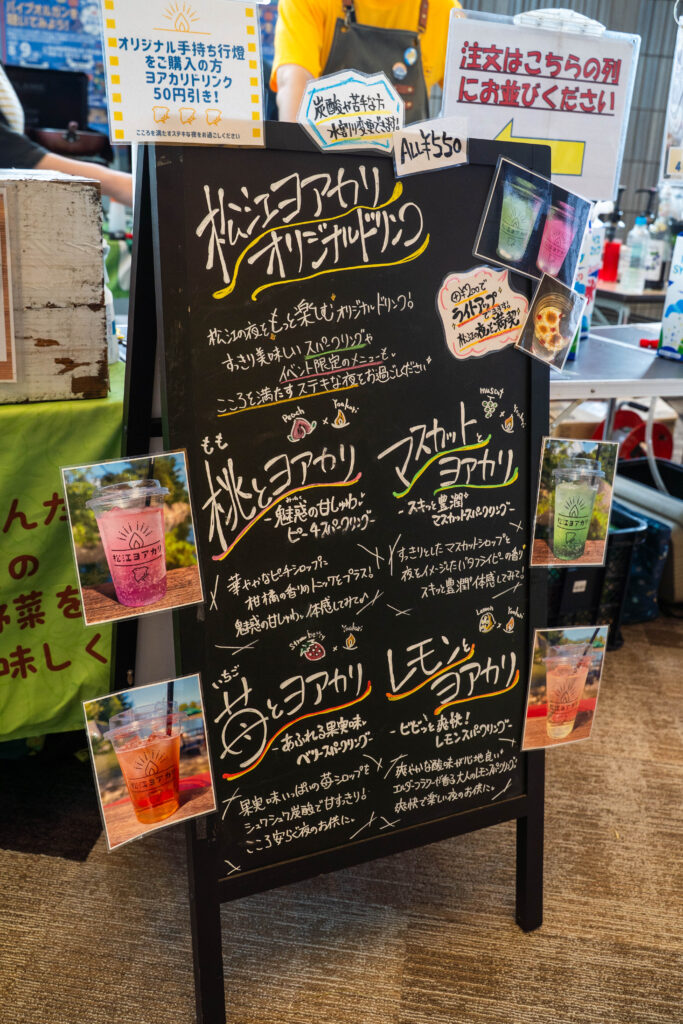 オリジナル手持ち行燈
をご購入の方
ヨアカリドリンク
50円引き!
こころを満たすステキな夜をお過ごしください
炭酸が苦手な方
水割り変更できます!
ALL¥550
注文はこちらの列
にお並びください
松江ヨアカリ
オリジナルドリンク
松江の夜をもっと楽しむオリジナルドリンク!
すっきり美味しいスパークリングや
イベント限定のメニューも。
こころを満たすステキな夜をお過ごしください
⊕¥200で
ライトアップ
できます!
松江の夜を満喫
Peach × Yoakari
もも
桃とヨアカリ
-魅惑の甘じゅわ
ピーチスパークリング-
華やかなピーチシロップに
柑橘の香りのトニックをプラス!
魅惑の甘じゅわっ体感してみて
muscat
× Yoakari
マスカットと
ヨアカリ
-スキッと豊潤
マスカットスパークリング-
すっきりとしたマスカットシロップと
夜をイメージしたバタフライピーの香り
スキッと豊潤体感してみて
Strawberry × Yoakari
いちご
苺とヨアカリ
-あふれる果実味
ベリースパークリング-
果実味いっぱいの苺シロップを
シュワシュワ炭酸で甘すっきり!
こころ安らぐ夜のお供に。
Lemon × Yoakari
レモンと
ヨアカリ
-ビビっと爽快!
レモンスパークリング-
爽やかな酸味が心地良い
エルダーフラワーが香る大人のレモンスパークリング
爽快で楽しい夜のお供に。
松江ヨアカリ
松江ヨアカリ
松江ヨアカリ
松江ヨアカリ
んた
の
野菜を
味しく